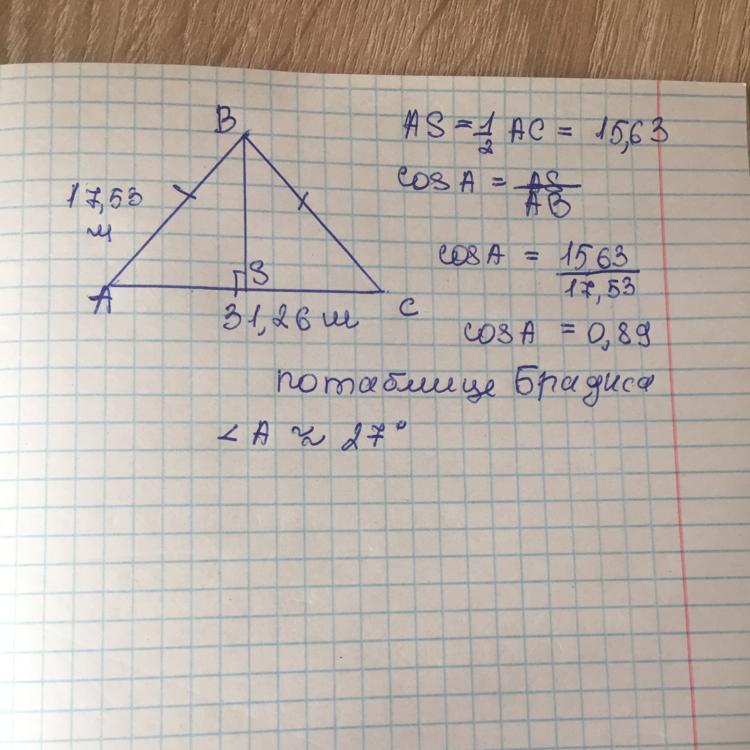 B
17,53
м
A
S
31,26 м
C
AS = 1/2 AC = 15,63
cos A = AS/AB
cos A = 1563/17,53
cos A = 0,89
по таблице Брадиса
∠ A ≈ 27°